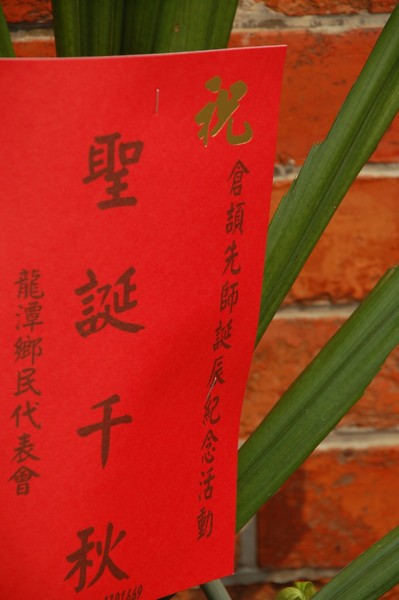 祝
倉頡先師誕辰紀念活動
聖誕千秋
龍潭鄉民代表會